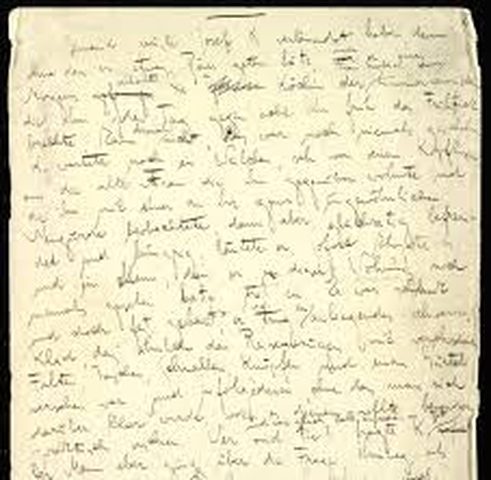 Jemand Josef K verleumdet haben denn
ohne dass er etwas Böses getan hätte
Morgens Die Köchin der
die ihm jeden Tag gegen acht Uhr früh das Frühstück
brachte kam diesmal nicht Das war noch niemals geschehen
K. wartete noch ein Weilchen, sah von seinem Kopfkissen
die alte Frau die ihm gegenüber wohnte und
die ihn mit einer an ihr ganz ungewöhnlichen
Neugierde beobachtete, dann aber, gleichzeitig befrem-
det und hungrig, läutete er Sofort klopfte es
und ein Mann, den er in dieser Wohnung noch
niemals gesehen hatte trat ein Er war schlank
und doch fest gebaut, er trug ein anliegendes schwarzes
Kleid, das ähnlich den Reiseanzügen mit verschiedenen
Falten, Taschen, Schnallen, Knöpfen und einem Gürtel
versehen war und infolgedessen, ohne dass man sich
darüber klar wurde, wozu es dienen sollte besonders
praktisch Wer sind Sie? fragte K
Der Mann aber ging über die Frage hinweg als